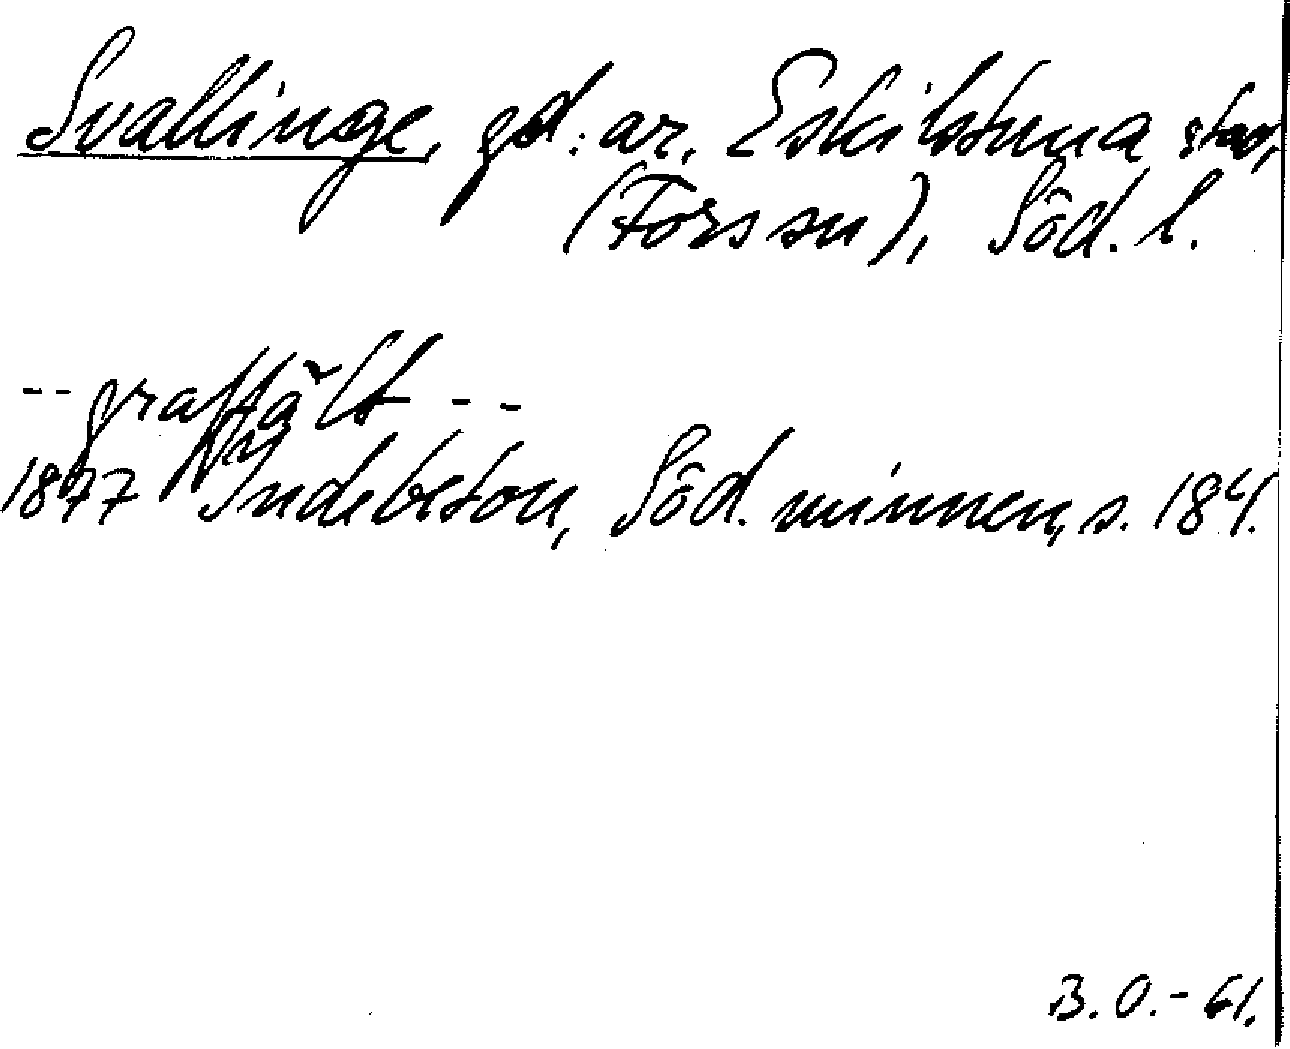 Svallinge, gd:ar, Eskilstuna stad,
(Fors sn), Söd. l.
-- graffält --
1877 Indebetou, Söd. minnen, s. 184.
B.O.-61.